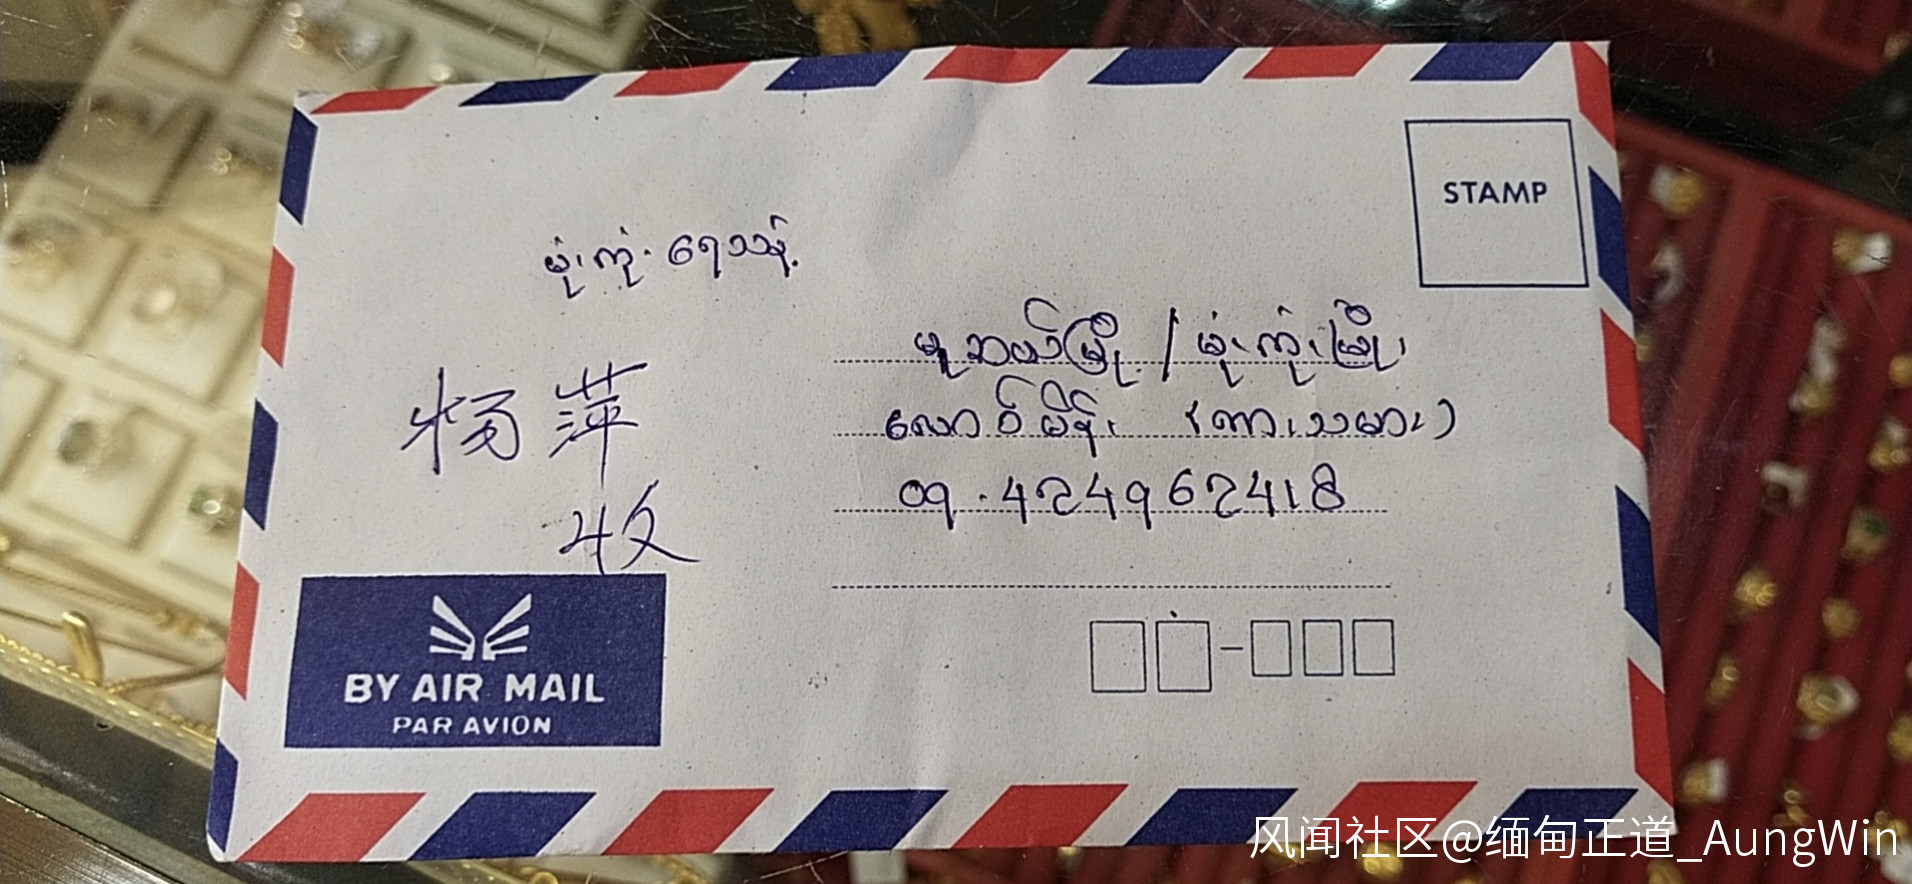 STAMP
မုံးကိုး ရေသန့်
မူဆယ်မြို့ / မုံးကိုးမြို့
လောဝ်မိန်း (ကားသမား)
09.424962418
杨萍
收
BY AIR MAIL
PAR AVION
风闻社区@缅甸正道_AungWin